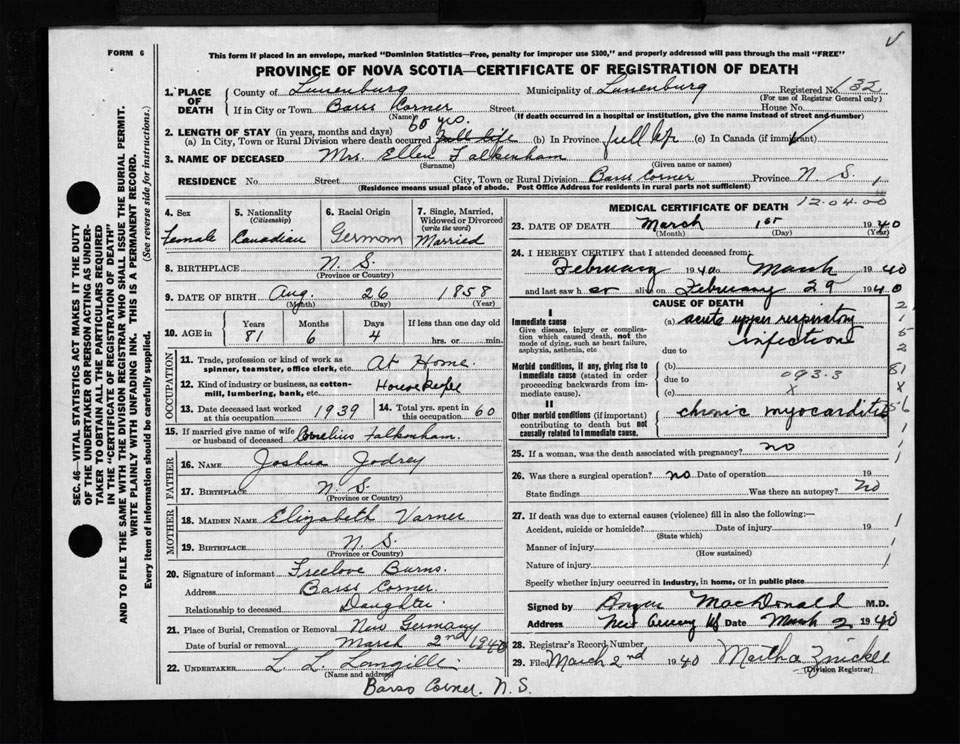 FORM 6
This form if placed in an envelope, marked "Dominion Statistics—Free, penalty for improper use $300," and properly addressed will pass through the mail "FREE"
PROVINCE OF NOVA SCOTIA—CERTIFICATE OF REGISTRATION OF DEATH
1. PLACE OF DEATH County of Lunenburg Municipality of Lunenburg Registered No. 132
(For use of Registrar General only)
If in City or Town Barss Corner Street House No.
(Name) (If death occurred in a hospital or institution, give the name instead of street and number)
60 yrs.
2. LENGTH OF STAY (in years, months and days)
(a) In City, Town or Rural Division where death occurred full life (b) In Province full life (c) In Canada (if immigrant)
3. NAME OF DECEASED Mrs. Ellen Falkenham
(Surname) (Given name or names)
RESIDENCE No. Street City, Town or Rural Division Barss Corner Province N. S.
(Residence means usual place of abode. Post Office Address for residents in rural parts not sufficient)
4. Sex Female
5. Nationality (Citizenship) Canadian
6. Racial Origin German
7. Single, Married, Widowed or Divorced (write the word) Married
8. BIRTHPLACE N. S.
(Province or Country)
9. DATE OF BIRTH Aug. 26 1858
(Month) (Day) (Year)
10. AGE in Years 81 Months 6 Days 4 If less than one day old hrs. or min.
OCCUPATION
11. Trade, profession or kind of work as spinner, teamster, office clerk, etc. At Home
12. Kind of industry or business, as cotton-mill, lumbering, bank, etc. House keeper
13. Date deceased last worked at this occupation 1939 14. Total yrs. spent in this occupation 60
15. If married give name of wife or husband of deceased Cornelius Falkenham.
FATHER
16. NAME Joshua Jodrey
17. BIRTHPLACE N. S.
(Province or Country)
MOTHER
18. MAIDEN NAME Elizabeth Varner
19. BIRTHPLACE N. S.
(Province or Country)
20. Signature of informant Freelove Burns.
Address Barss Corner.
Relationship to deceased Daughter
21. Place of Burial, Cremation or Removal New Germany
Date of burial or removal March 2nd 1940
22. UNDERTAKER L. L. Langille
(Name and address)
Barss Corner. N. S.
MEDICAL CERTIFICATE OF DEATH
12.04.00
23. DATE OF DEATH March 1st 1940
(Month) (Day) (Year)
24. I HEREBY CERTIFY that I attended deceased from:
February 1940 to March 1940
and last saw her alive on February 29 1940
CAUSE OF DEATH
I
Immediate cause
Give disease, injury or complication which caused death, not the mode of dying, such as heart failure, asphyxia, asthenia, etc
(a) acute upper respiratory infection
due to
Morbid conditions, if any, giving rise to immediate cause (stated in order proceeding backwards from immediate cause).
(b)
due to 093.3
(c) X
II
Other morbid conditions (if important) contributing to death but not causally related to immediate cause.
chronic myocarditis
25. If a woman, was the death associated with pregnancy? no
26. Was there a surgical operation? no Date of operation 19
State findings Was there an autopsy? no
27. If death was due to external causes (violence) fill in also the following:—
Accident, suicide or homicide? Date of injury 19
(State which)
Manner of injury
(How sustained)
Nature of injury
Specify whether injury occurred in industry, in home, or in public place
Signed by Angus MacDonald M.D.
Address New Germany NS Date March 2 1940
28. Registrar's Record Number
29. Filed March 2nd 1940 Martha Zwicker
(Division Registrar)
SEC. 46—VITAL STATISTICS ACT MAKES IT THE DUTY
OF THE UNDERTAKER OR PERSON ACTING AS UNDER-
TAKER TO OBTAIN ALL THE PARTICULARS REQUIRED
IN THE "CERTIFICATE OF REGISTRATION OF DEATH"
AND TO FILE THE SAME WITH THE DIVISION REGISTRAR WHO SHALL ISSUE THE BURIAL PERMIT.
WRITE PLAINLY WITH UNFADING INK. THIS IS A PERMANENT RECORD.
Every item of information should be carefully supplied. (See reverse side for instructions.)